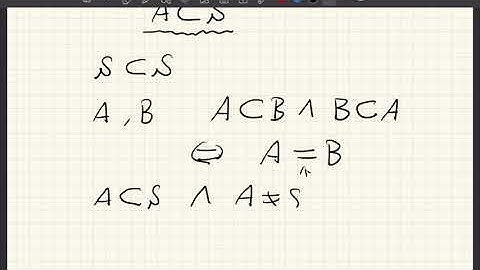 A ⊂ S
S ⊂ S
A , B A ⊂ B ∧ B ⊂ A
⇔ A = B
A ⊂ S ∧ A ≠ S